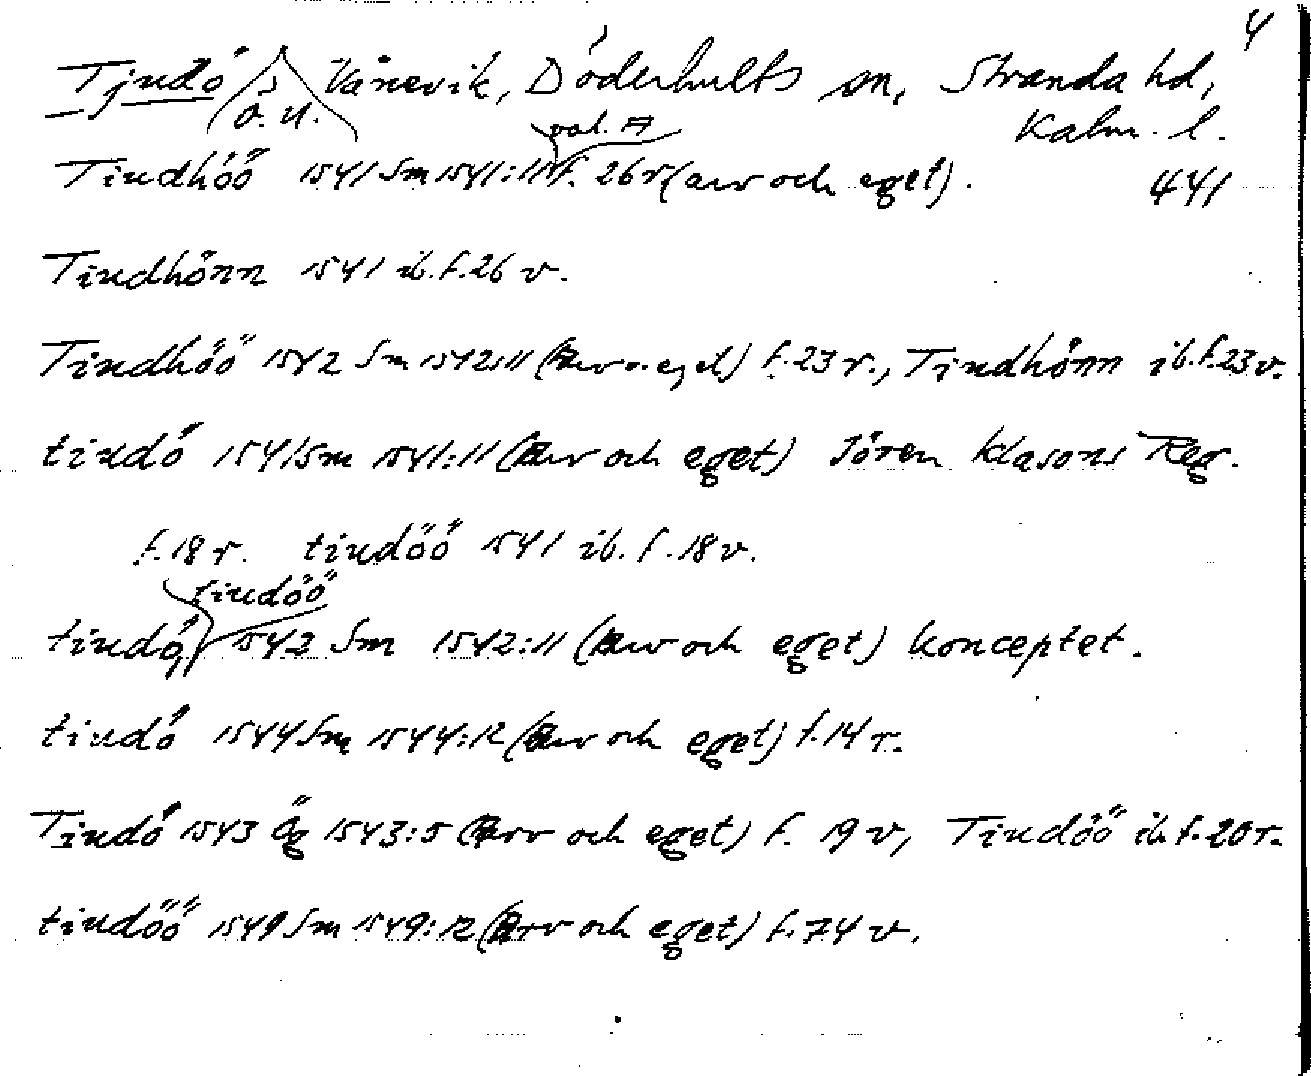 4
Tjudö s o. u. Vånevik, Döderhults sn, Stranda hd,
Kalm. l.
Tiudhöö 1541 Sm 1541:11 pal. A f. 26 r (arv och eget). 441
Tiudhönn 1541 ib. f. 26 v.
Tiudhöö 1542 Sm 1542:11 (Arv o. eget) f. 23 r., Tiudhönn ib. f. 23 v.
tiudö 1541 Sm 1541:11 (Arv och eget) Jören Klasons Reg.
f. 18 r. tiudöö 1541 ib. f. 18 v.
tiudöö
tiudö, 1542 Sm 1542:11 (Arv och eget) konceptet.
tiudö 1544 Sm 1544:12 (Arv och eget) f. 14 r.
Tiudö 1543 Ög 1543:5 (Arv och eget) f. 19 v, Tiudöö ib. f. 20 r.
tiudöö 1549 Sm 1549:12 (Arv och eget) f. 74 v.